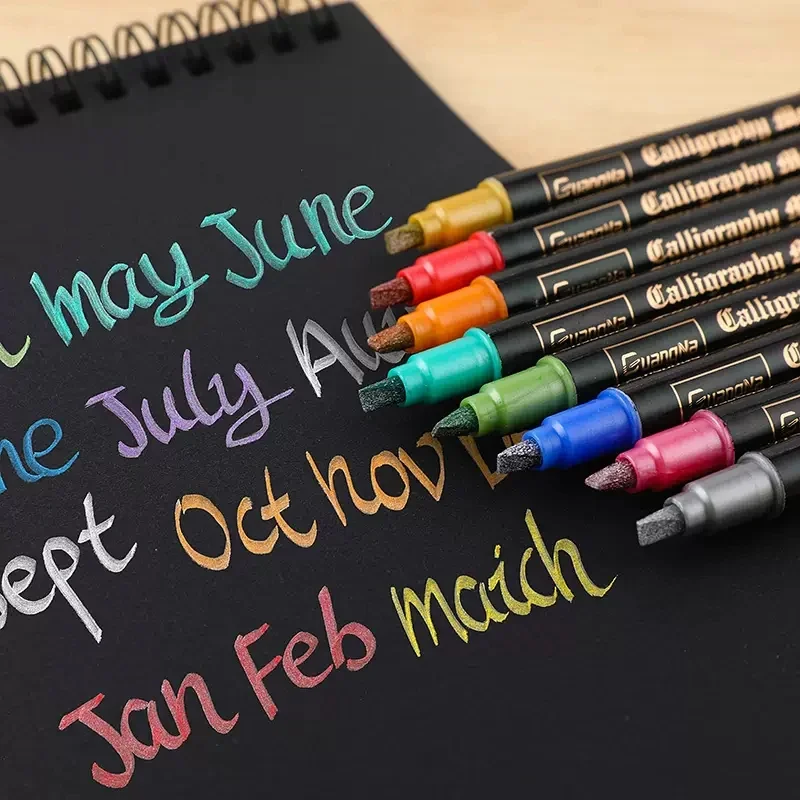 may June
July Au
Sept Oct Nov
Jan Feb maich
GuangNa Calligraphy M
GuangNa Calligraphy M
GuangNa Calligraphy M
GuangNa Calligraphy M
GuangNa Calligra
GuangNa